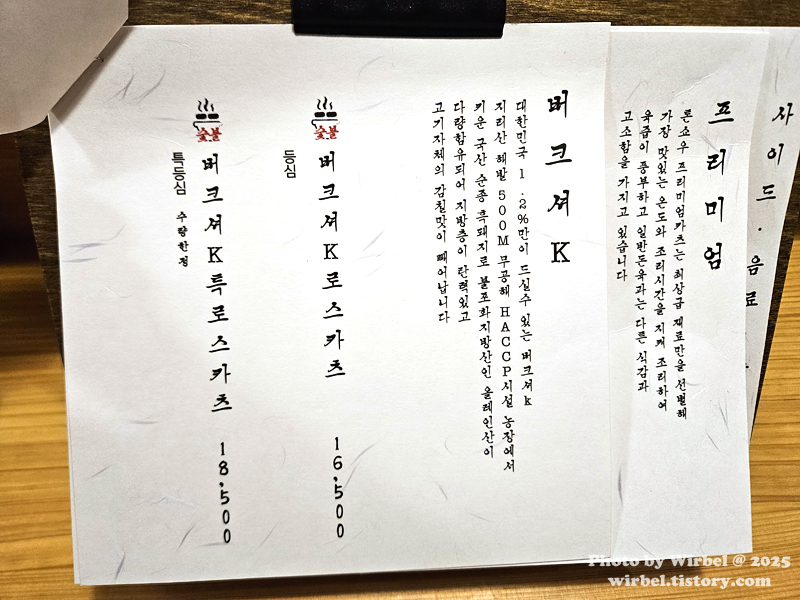 사이드·음료
프리미엄
론쇼우 프리미엄카츠는 최상급 재료만을 선별해
가장 맛있는 온도와 조리시간을 지켜 조리하여
육즙이 풍부하고 일반돈육과는 다른 식감과
고소함을 가지고 있습니다
버크셔K
대한민국 1.2%만이 드실수 있는 버크셔k
지리산 해발 500M 무공해 HACCP시설 농장에서
키운 국산 순종 흑돼지로 불포화지방산인 올레인산이
다량함유되어 지방층이 탄력있고
고기자체의 감칠맛이 빼어납니다
숯불
버크셔K로스카츠 16,500
등심
숯불
버크셔K특로스카츠 18,500
특등심 수량한정
Photo by Wirbel @ 2025
wirbel.tistory.com